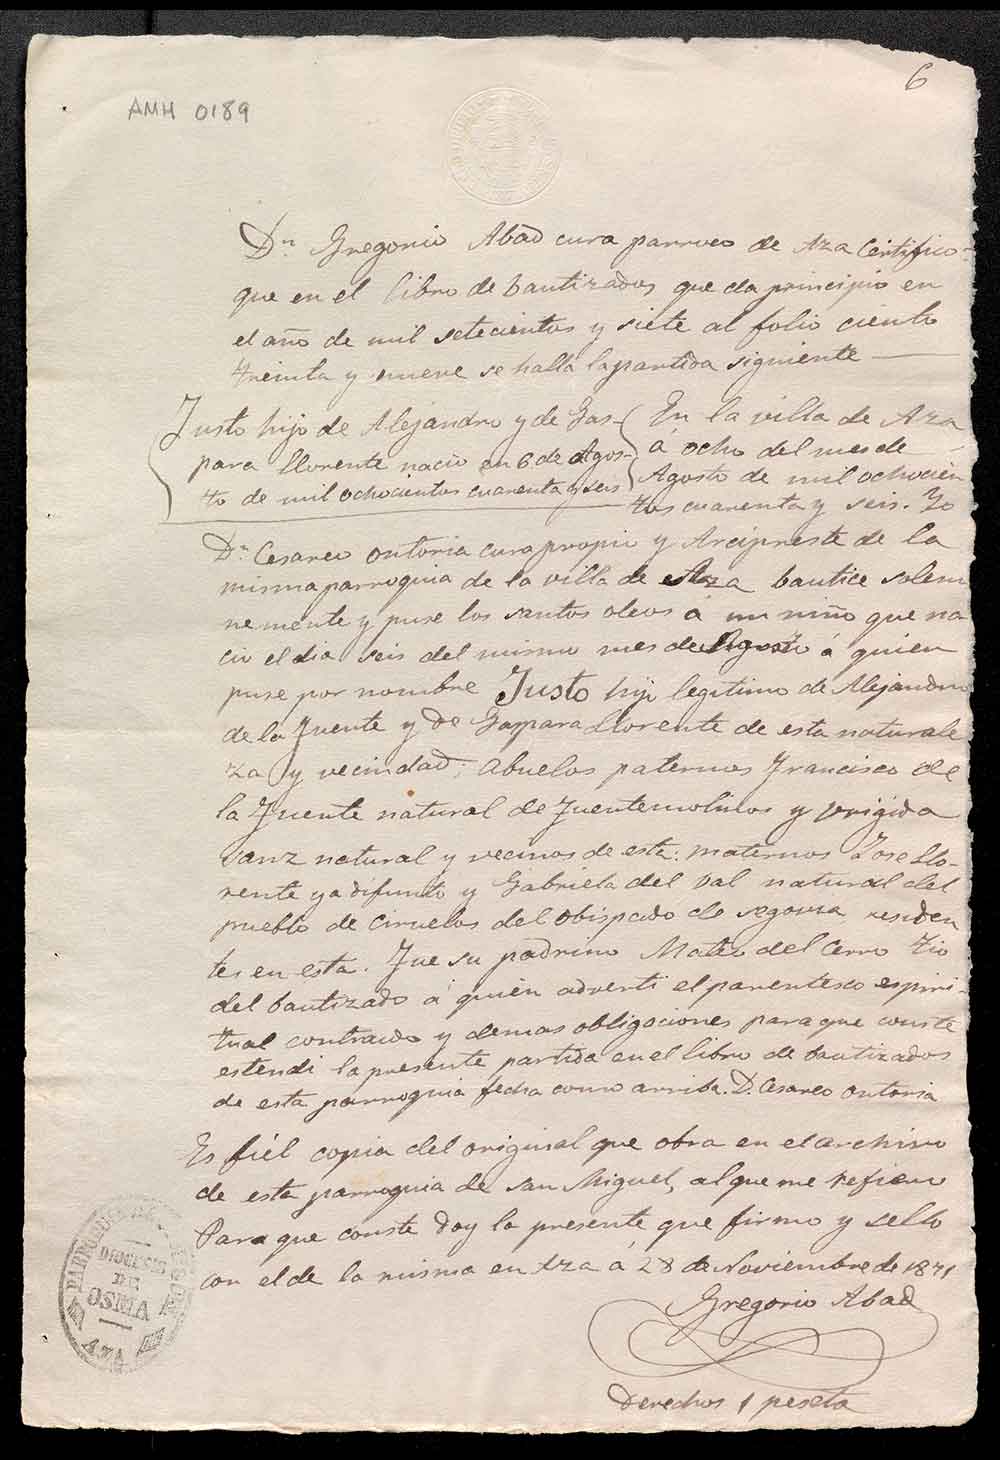 6
AMH 0189
Dn Gregorio Abad cura parroco de Aza Certifico-
que en el libro de bautizados que da principio en
el año de mil setecientos y siete al folio ciento
treinta y nueve se halla la partida siguiente —
Justo hijo de Alejandro y de Gas-
para Llorente nacio en 6 de Agos-
to de mil ochocientos cuarenta y seis
En la villa de Aza
á ocho del mes de
Agosto de mil ochocien
tos cuarenta y seis. Yo
Dn Cesareo Ontoria cura propio y Arcipreste de la
misma parroquia de la villa de Aza bautice solem
nemente y puse los santos oleos á un niño que na
cio el dia seis del mismo mes de Agosto á quien
puse por nombre Justo hijo legitimo de Alejandro
de la Fuente y de Gaspara Llorente de esta naturale
za y vecindad; abuelos paternos Francisco de
la Fuente natural de Fuentemolinos y Brigida
Sanz natural y vecinos de esta: maternos Jose Llo-
rente ya difunto y Gabriela del Val natural del
pueblo de Ciruelos del Obispado de Segovia residen
tes en esta. Fue su padrino Mateo del Cerro Tio
del bautizado á quien adverti el parentesco espiri-
tual contraido y demas obligaciones para que conste
estendi la presente partida en el libro de bautizados
de esta parroquia fecha como arriba. D. Cesareo Ontoria
Es fiel copia del original que obra en el archivo
de esta parroquia de San Miguel, al que me refiero
Para que conste doy la presente que firmo y sello
con el de la misma en Aza á 28 de Noviembre de 1871
Gregorio Abad
Derechos 1 peseta
DIOCESIS
DE
OSMA
AZA